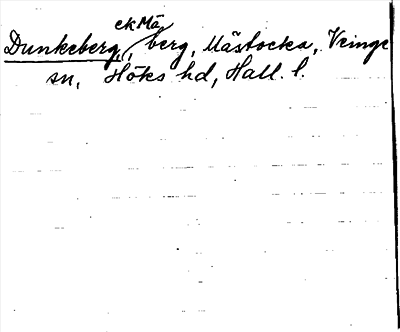 ekMä
Dunkeberg, berg, Mästocka, Veinge
sn, Höks hd, Hall. l.